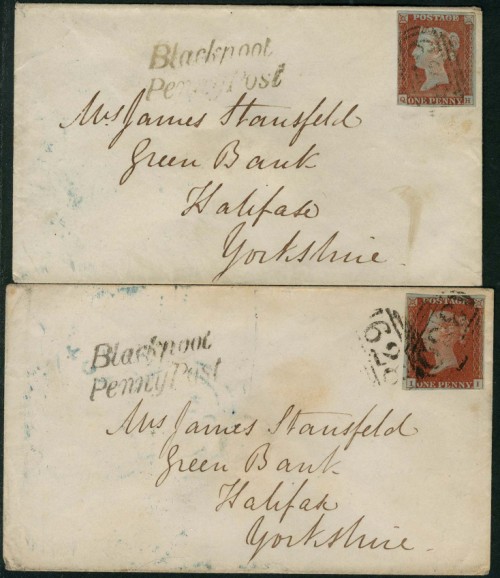 Blackpool
Penny Post
POSTAGE
ONE PENNY
Mrs James Stansfeld
Green Bank
Halifax
Yorkshire
Blackpool
Penny Post
POSTAGE
ONE PENNY
I I
Mrs James Stansfeld
Green Bank
Halifax
Yorkshire.